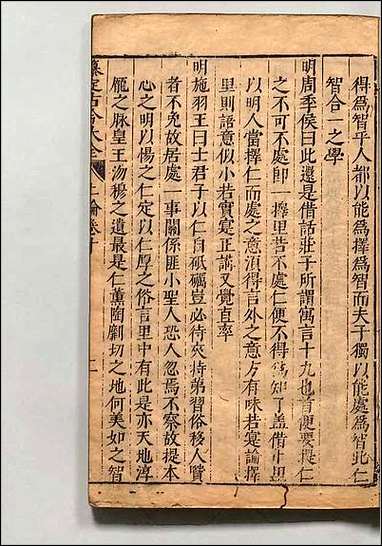 得為智乎人都以能為擇為智而夫子獨以能處為智此仁
智合一之學
明周季侯曰此還是借話莊子所謂寓言十九也首便要提仁
之不可不處即一擇里苟不處仁便不得為知了蓋借十里
以明人當擇仁而處之意須得言外之意方有味若寔論擇
里則語意似小若實寔正講又覺直率
明施羽王曰士君子以仁自砥礪豈必待夾持弟習俗移人賢
者不免故居處一事關係匪小聖人恐人忽焉不察故提本
心之明以惕之仁定以仁厚之俗言里中有此是亦天地淳
龐之脉皇王沕穆之遺最是仁薰陶劘切之地何美如之智
四書古今大全 上論卷二